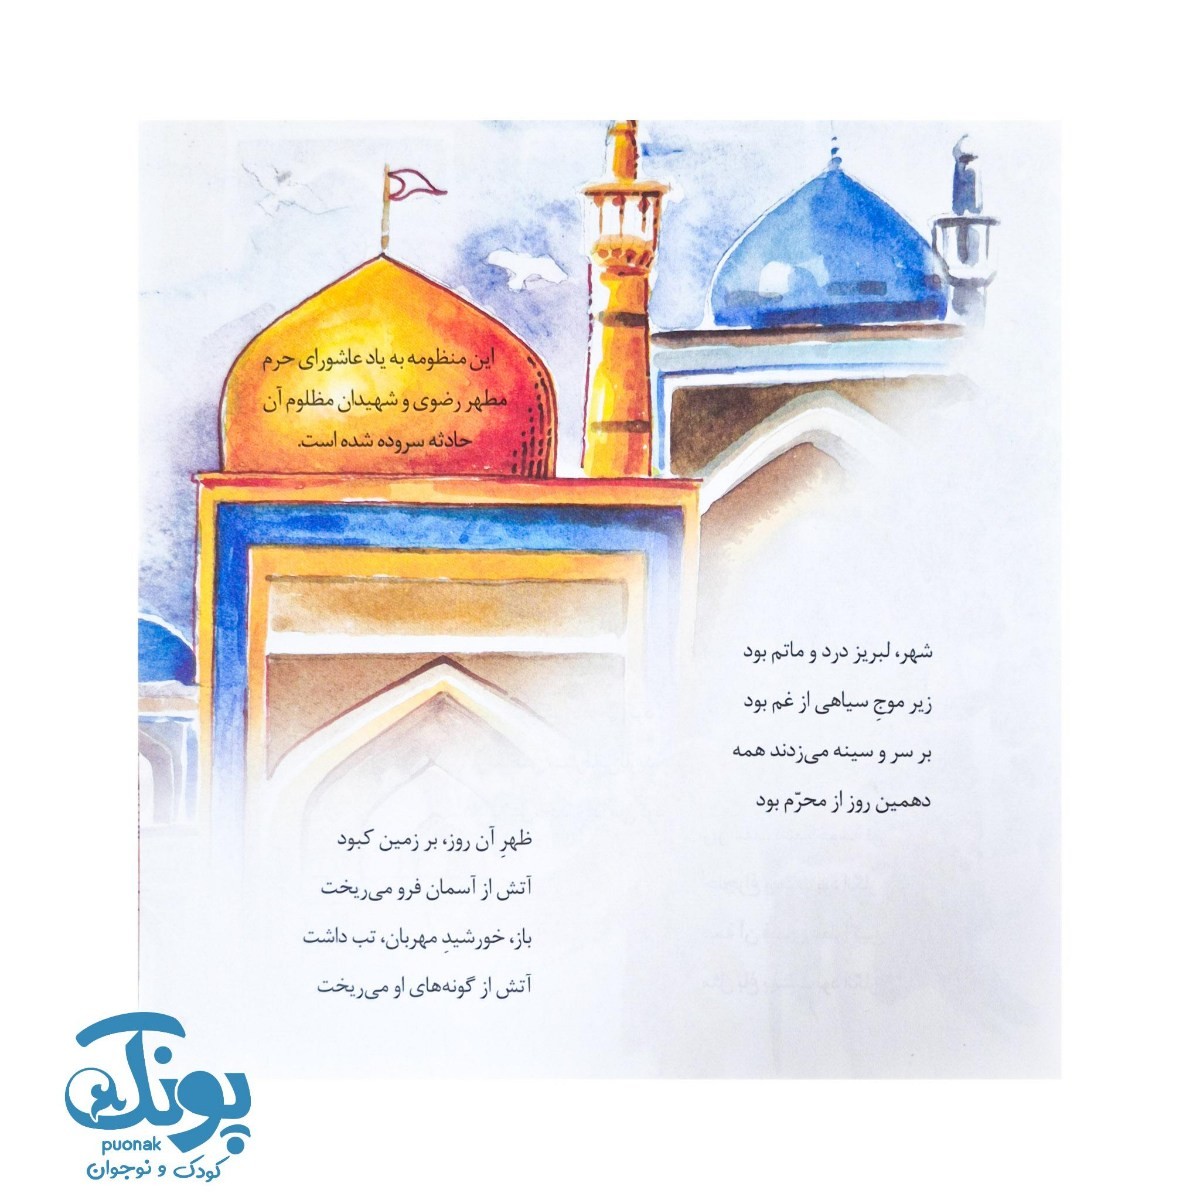 این منظومه به یاد عاشورای حرم
مطهر رضوی و شهیدان مظلوم آن
حادثه سروده شده است.
شهر، لبریز درد و ماتم بود
زیر موجِ سیاهی از غم بود
بر سر و سینه می‌زدند همه
دهمین روز از محرّم بود
ظهرِ آن روز، بر زمین کبود
آتش از آسمان فرو می‌ریخت
باز، خورشیدِ مهربان، تب داشت
آتش از گونه‌های او می‌ریخت
پونک
puonak
کودک و نوجوان